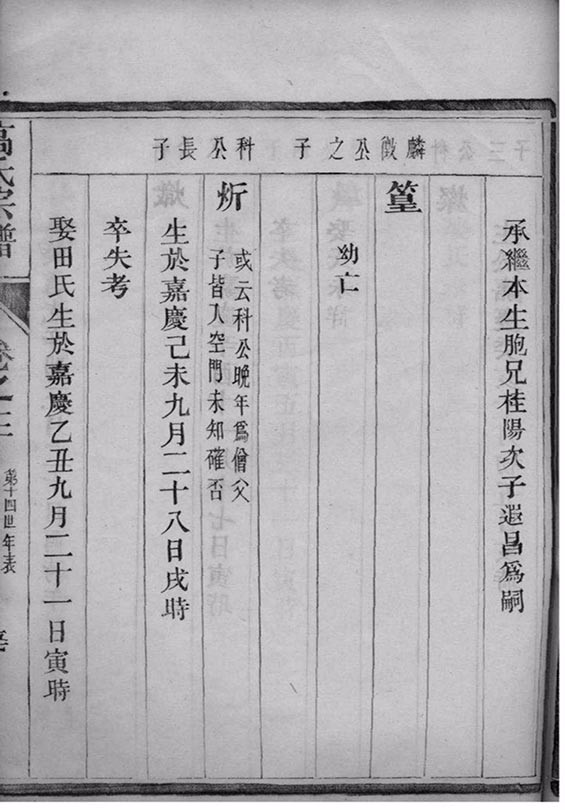 承繼本生胞兄桂陽次子遐昌為嗣
麟徵公之子
篁
幼亡
科公長子
炘
或云科公晚年為僧父
子皆入空門未知確否
生於嘉慶己未九月二十八日戌時
卒失考
娶田氏生於嘉慶乙丑九月二十一日寅時
高氏宗譜
卷之三
第十四世年表